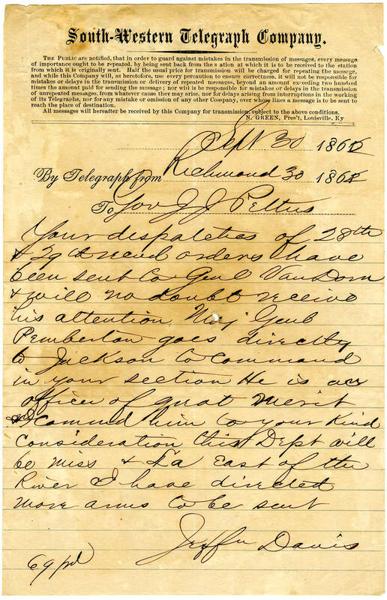 South-Western Telegraph Company.
THE PUBLIC are notified, that in order to guard against mistakes in the transmission of messages, every message
of importance ought to be repeated, by being sent back from the station at which it is to be received to the station
from which it is originally sent. Half the usual price for transmission will be charged for repeating the message,
and while this Company will, as heretofore, use every precaution to ensure correctness, it will not be responsible for
mistakes or delays in the transmission or delivery of repeated messages, beyond an amount exceeding two hundred
times the amount paid for sending the message; nor will it be responsible for mistakes or delays in the transmission
of unrepeated messages, from whatever cause they may arise, nor for delays arising from interruptions in the working
of its Telegraphs, nor for any mistake or omission of any other Company, over whose lines a message is to be sent to
reach the place of destination.
All messages will hereafter be received by this Company for transmission subject to the above conditions.
N. GREEN, Pres't, Louisville, Ky
Sept 30 186
By Telegraph from Richmond 30 186
To Gov J J Pettus
Your dispatches of 28th
& 29 recd orders have
been sent to Genl Van Dorn
& will no doubt receive
his attention Maj Genl
Pemberton goes directly
to Jackson to command
in your section He is an
officer of great merit
and commend him to your kind
consideration this Dept will
be Miss & La East of the
River I have directed
more arms to be sent
Jeffn Davis
69 pd